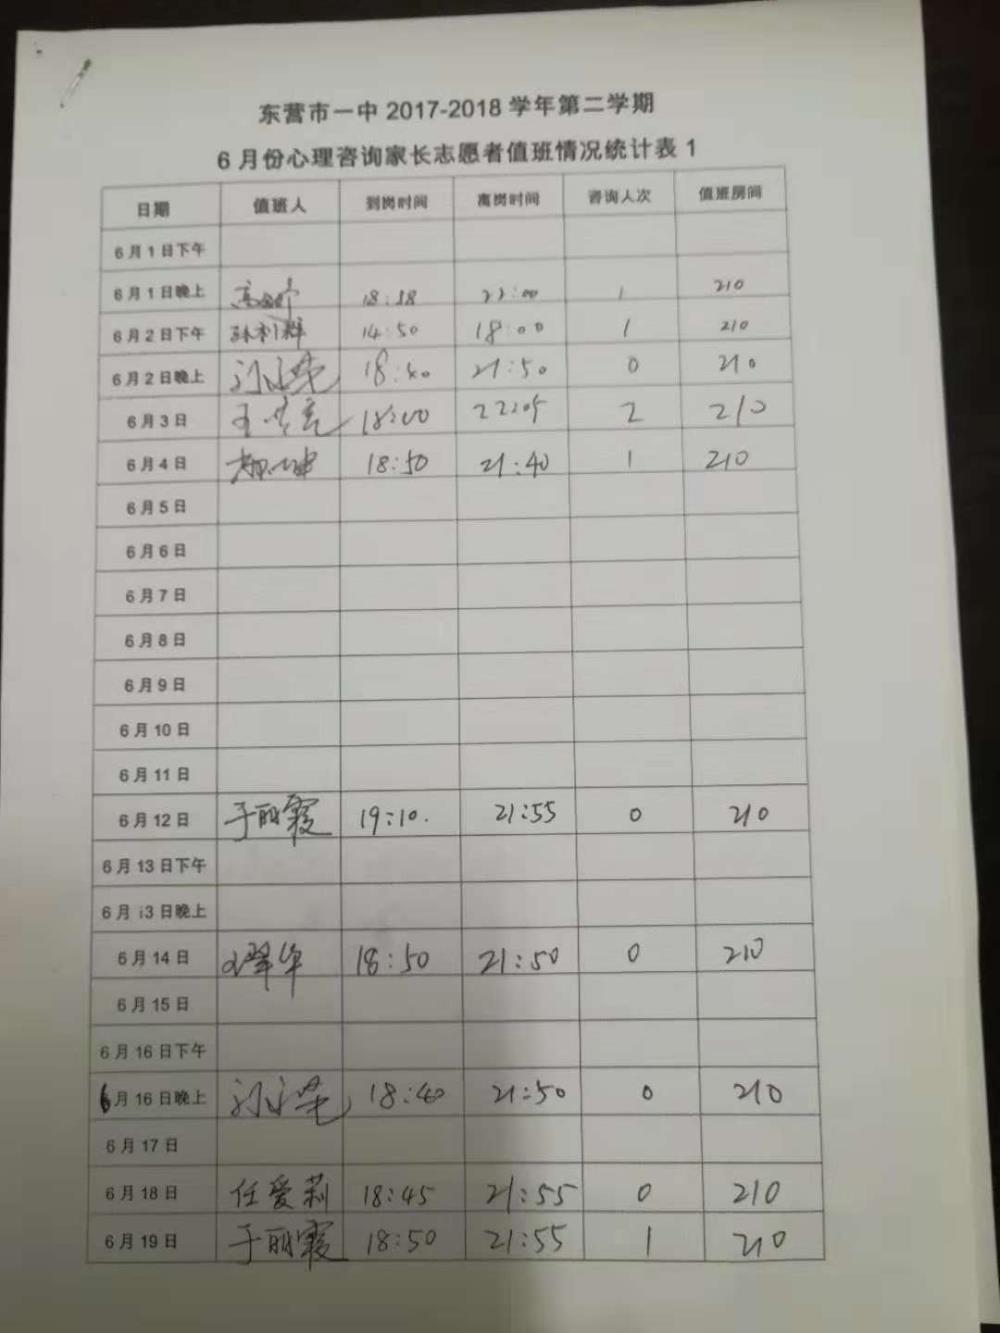 东营市一中 2017-2018 学年第二学期
6 月份心理咨询家长志愿者值班情况统计表 1
日期 值班人 到岗时间 离岗时间 咨询人次 值班房间
6 月 1 日下午
6 月 1 日晚上 18:38 22:00 1 210
6 月 2 日下午 孙利群 14:50 18:00 1 210
6 月 2 日晚上 18:40 21:50 0 210
6 月 3 日 18:00 22:05 2 210
6 月 4 日 18:50 21:40 1 210
6 月 5 日
6 月 6 日
6 月 7 日
6 月 8 日
6 月 9 日
6 月 10 日
6 月 11 日
6 月 12 日 于丽霞 19:10. 21:55 0 210
6 月 13 日下午
6 月 i3 日晚上
6 月 14 日 18:50 21:50 0 210
6 月 15 日
6 月 16 日下午
6月 16 日晚上 18:40 21:50 0 210
6 月 17 日
6 月 18 日 任爱莉 18:45 21:55 0 210
6 月 19 日 于丽霞 18:50 21:55 1 210